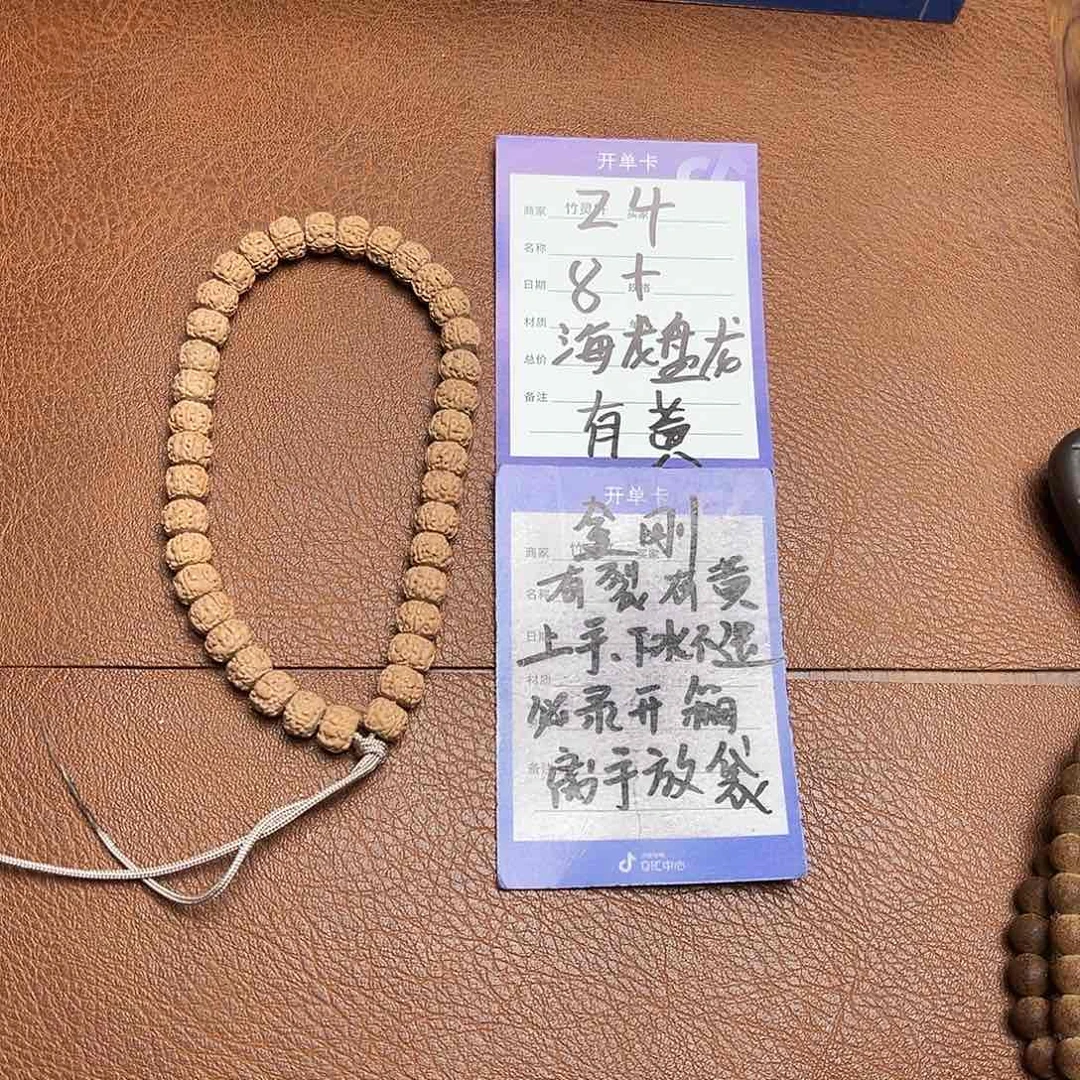 开单卡
商家 竹灵轩 买家
Z4
名称
日期 规格
8+
材质
海龙盘龙
总价
备注
有黄
开单卡
金刚
商家 竹
名称
有裂有黄
日期
上手、下水不退
材质
必录开箱
备注
离手放袋